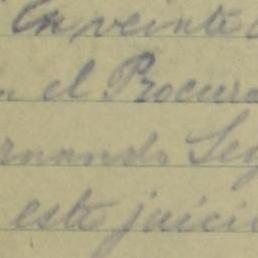 En veinte
el Procura
rnando Seg
este juicio